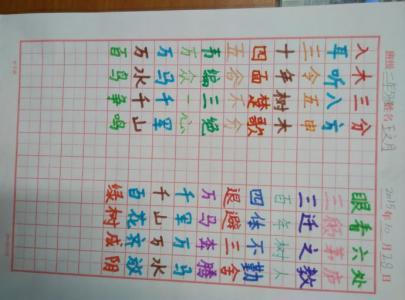 班级 二年 姓名 2015年10月28日
入木三分 眼看六处
耳听八方 三顾茅庐
三令五申 三迁之教
十年树木 百年树人
四面楚歌 四体不勤
五谷不分 退避三舍
韦编三绝 万马奔腾
万众一心 千军万马
万马千军 千山万水
万水千山 百花齐放
百鸟争鸣 绿树成阴